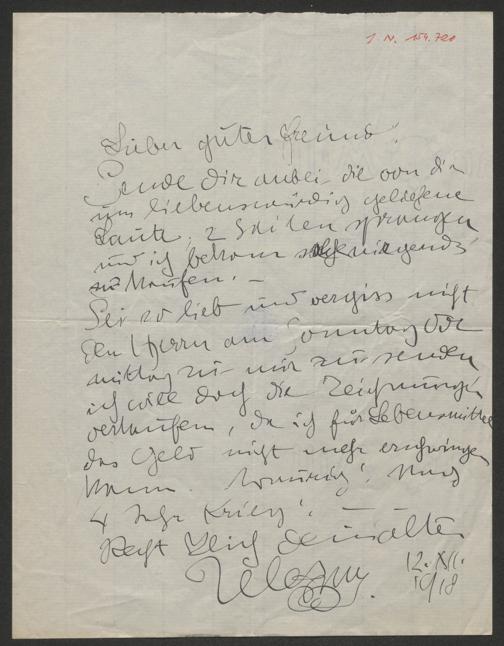 I. N. 154.720
Lieber guter Freund!
Sende dir anbei die von dir
um liebenswürdig geliehene
Laute, 2 Saiten sprangen
und ich bekam nirgends
zu kaufen. –
Sei so lieb und vergiss nicht
den Herrn am Sonntag Vor
mittag zu mir zu senden
ich will doch die Zeichnungen
verkaufen, da ich für Lebensmittel
das Geld nicht mehr erschwingen
kann. Traurig! Nach
4 Jahr Krieg! –
Recht dein alter
12. XII.
1918